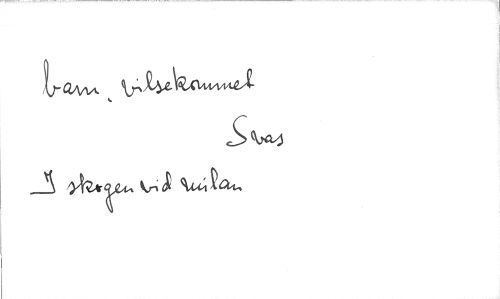 barn, vilsekommet
Svas
I skogen vid milan